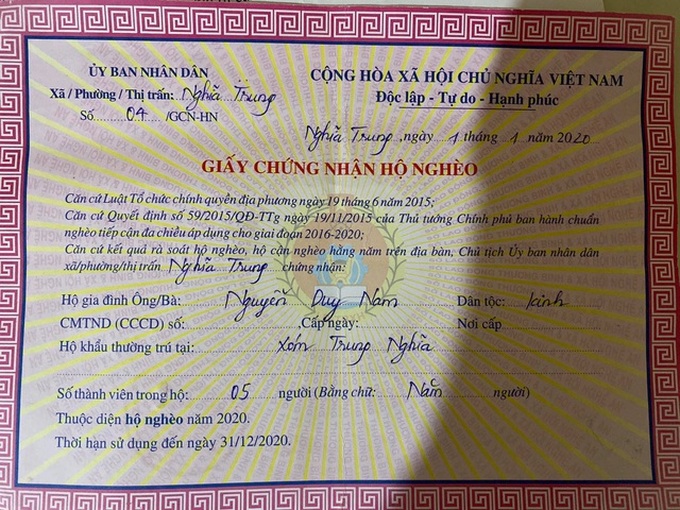 ỦY BAN NHÂN DÂN
Xã / Phường / Thị trấn: Nghĩa Trung
Số: 04 /GCN-HN
CỘNG HÒA XÃ HỘI CHỦ NGHĨA VIỆT NAM
Độc lập - Tự do - Hạnh phúc
Nghĩa Trung, ngày 1 tháng 1 năm 2020
GIẤY CHỨNG NHẬN HỘ NGHÈO
Căn cứ Luật Tổ chức chính quyền địa phương ngày 19 tháng 6 năm 2015;
Căn cứ Quyết định số 59/2015/QĐ-TTg ngày 19/11/2015 của Thủ tướng Chính phủ ban hành chuẩn
nghèo tiếp cận đa chiều áp dụng cho giai đoạn 2016-2020;
Căn cứ kết quả rà soát hộ nghèo, hộ cận nghèo hằng năm trên địa bàn, Chủ tịch Ủy ban nhân dân
xã/phường/thị trấn Nghĩa Trung chứng nhận:
Hộ gia đình Ông/Bà: Nguyễn Duy Nam Dân tộc: kinh
CMTND (CCCD) số: ,Cấp ngày: Nơi cấp
Hộ khẩu thường trú tại: xóm Trung Nghĩa
Số thành viên trong hộ: 05 người (Bằng chữ: Năm người)
Thuộc diện hộ nghèo năm 2020.
Thời hạn sử dụng đến ngày 31/12/2020.